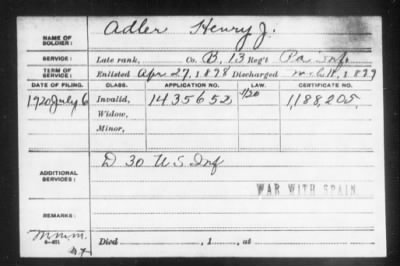 NAME OF SOLDIER: Adler Henry J.
SERVICE: Late rank, Co. B, 13 Reg't Pa Inf.
TERM OF SERVICE: Enlisted Apr 27, 1898 Discharged Mch 11, 1899
DATE OF FILING. CLASS. APPLICATION NO. LAW. CERTIFICATE NO.
1920 July 6 Invalid, 1435652 1,188,205
Widow,
Minor,
ADDITIONAL SERVICES: D 30 U S Inf
WAR WITH SPAIN
REMARKS:
Died , 1 , at